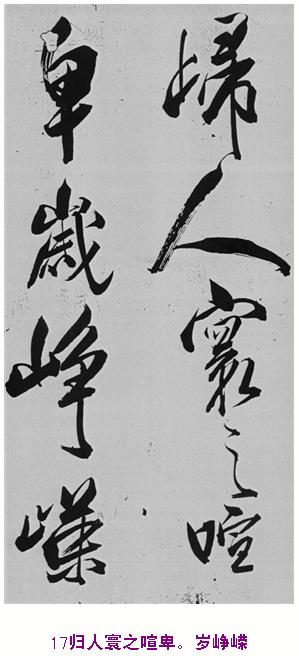 歸人寰之喧
卑歲崢嶸
17归人寰之喧卑。岁峥嵘